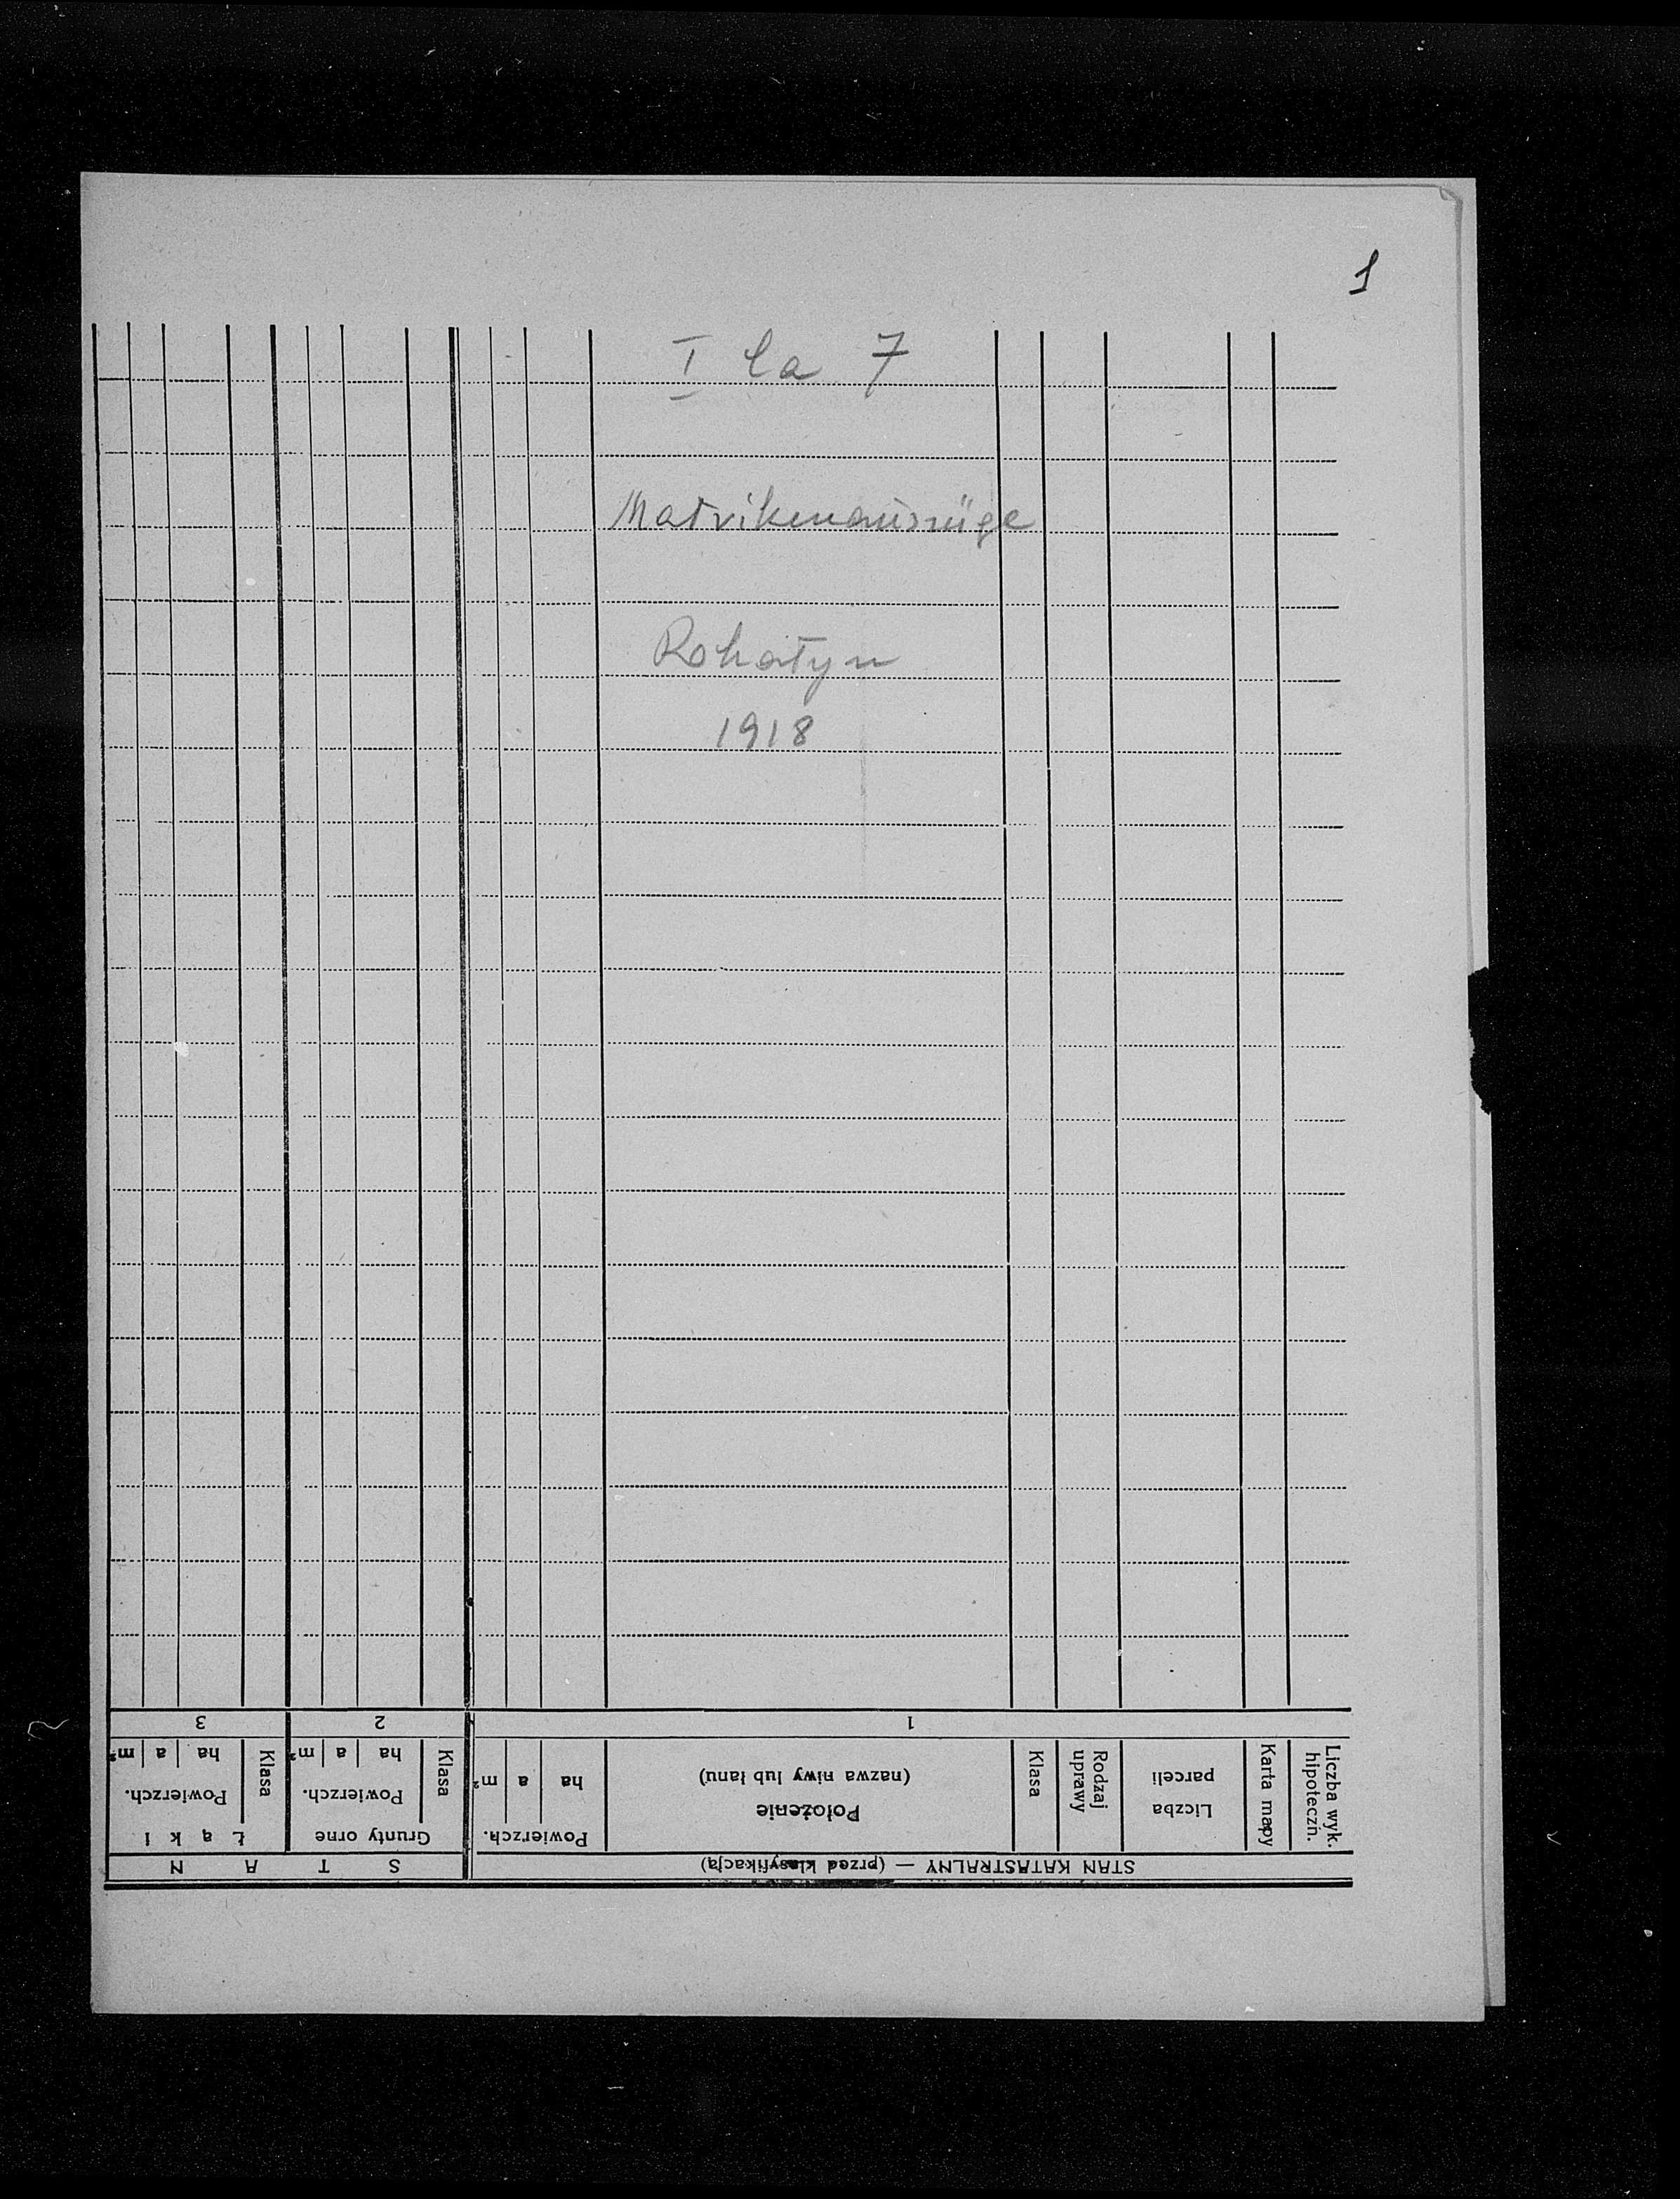 1
I La 7
Matrikenauszüge
Rohatyn
1918
STAN KATASTRALNY — (przed klasyfikacją)
S T A N
Liczba wyk. hipoteczn.
Karta mapy
Liczba parceli
Rodzaj uprawy
Klasa
Położenie
(nazwa niwy lub łanu)
Powierzch.
ha a m²
Grunty orne
Klasa
Powierzch.
ha a m²
Ł ą k i
Klasa
Powierzch.
ha a m²
1 2 3